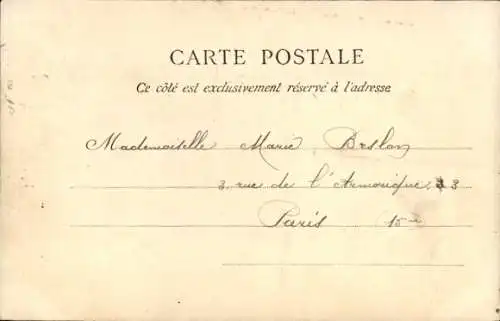 CARTE POSTALE
Ce côté est exclusivement réservé à l'adresse
Mademoiselle Marie Beslon
3 rue de l'Armorique, 3
Paris 15e